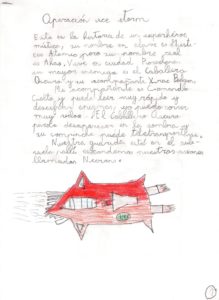 Operación ice storm
Esta es la historia de un superhéroe
mítico, su nombre en clave es Míster
Atómic pero su nombre real
es Alex. Vive en ciudad
su mayor enemigo es el Caballero
Oscuro y su acompañante
Mi acompañante es Comando
Cielo y puede leer muy rápido y
descubrir enigmas, yo puedo correr
muy veloz. El Caballero Oscuro
puede desaparecer en la sombra y
su compinche puede teletransportarse.
Nuestra guarida está en el sub-
suelo, allí escondemos nuestros aviones
llamados